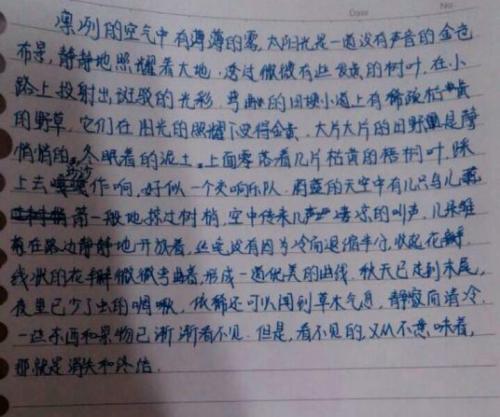 凛冽的空气中有薄薄的雾,太阳光是一道没有声音的金色
布景,静静地照耀着大地,透过微微有些发黄的树叶,在小
路上投射出斑驳的光彩,弯曲的田埂小道上有稀疏枯黄
的野草,它们在阳光的照耀下变得金黄,大片大片的田野是静
悄悄的,冬眠着的泥土。上面零落着几片枯黄的梧桐叶,踩
上去沙沙作响,好似一个交响乐队,蔚蓝的天空中有几只鸟儿
箭一般地掠过树梢,空中传来几声凄凉的叫声,几朵雏
菊在路边静静地开放着,丝毫没有因为冷而退缩半分,收起花瓣
线状的花瓣微微弯曲着,形成一道优美的曲线,秋天已走到末尾,
夜里已少了虫的啁啾,依稀还可以闻到草木气息,静寂而清冷,
一些东西和果物已渐渐看不见,但是,看不见的,又从不意味着,
那就是消失和终结.